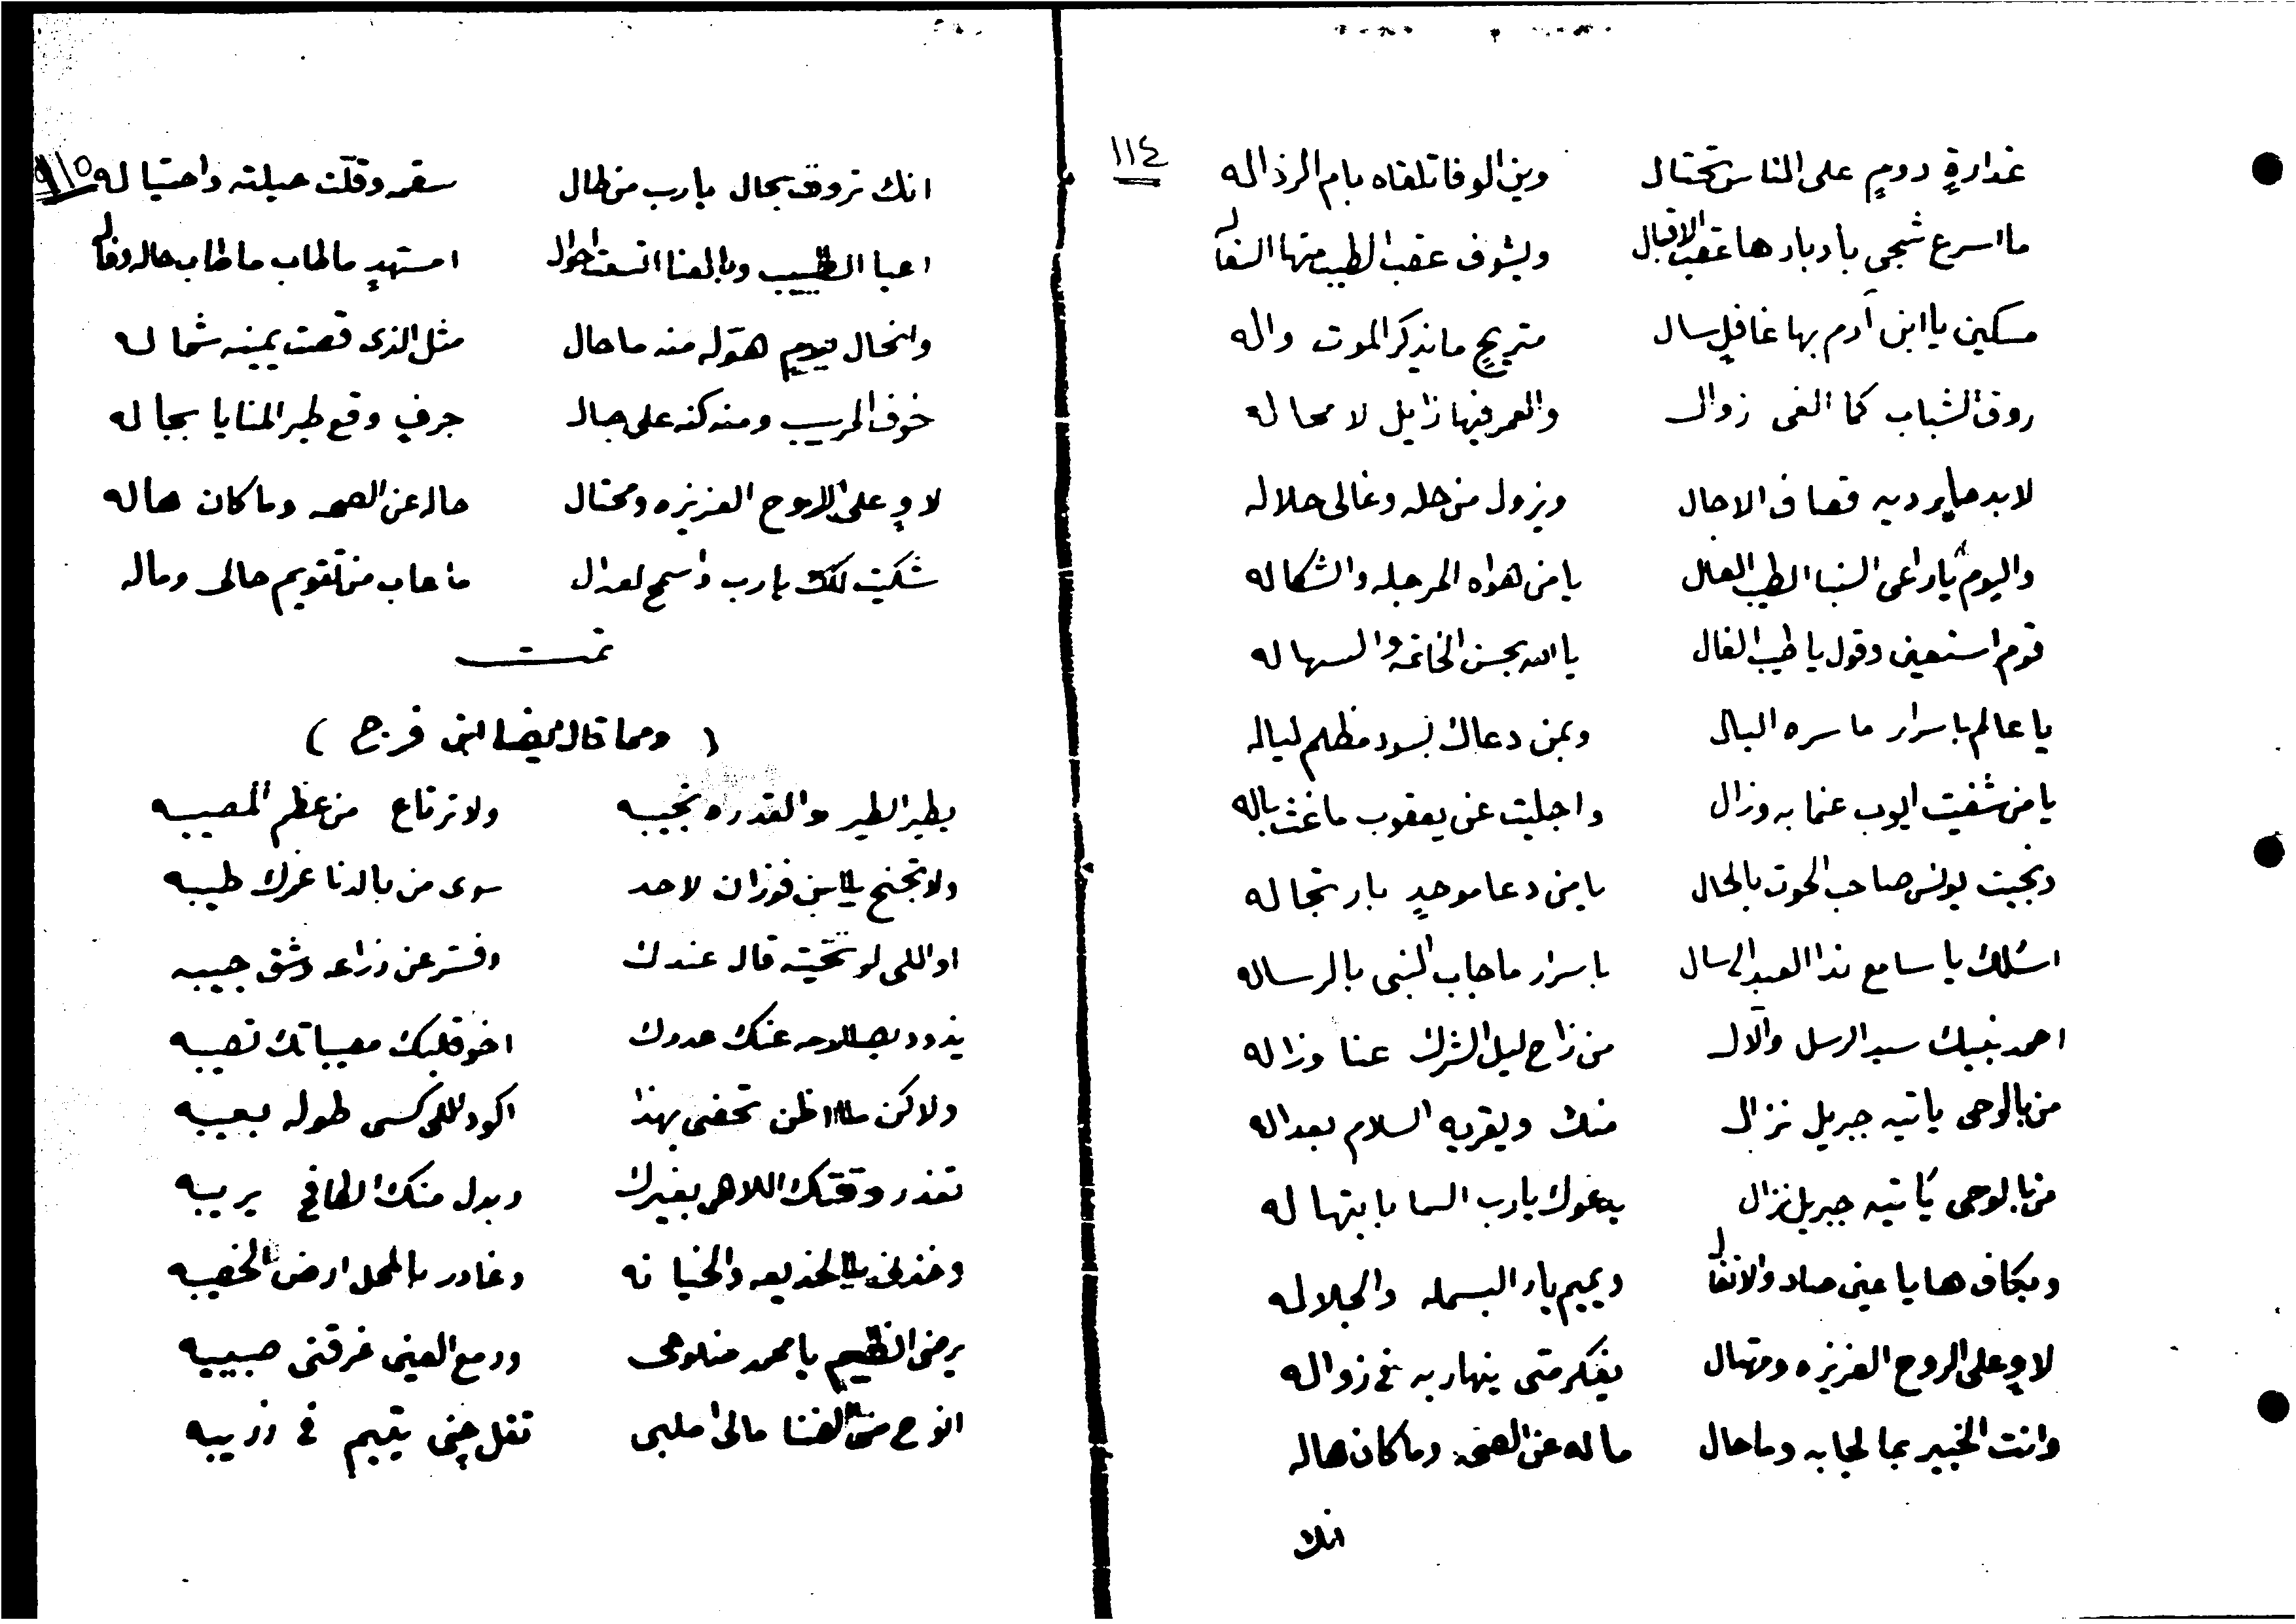 ١١٤
غدارةٍ دومٍ على الناس تحتال وين الوفا تلقاه يام الرذاله
ما اسرع شجى بادبارها عقب الاقبال ويشوف عقب الطيب منها
مسكين يا ابن آدم بها غافلٍ سال متريحٍ ما يذكر الموت واله
روق الشباب كما الفى زوال والعمر فيها زايل لا محاله
لابد ما يرديه قصاف الاجال ويزول من حله وغالى حلاله
واليوم يا راعى الطيب يا من هواه المرجله والشكاله
قوم استعين وقول يا طيب الفال يا الله بحسن الخاتمه والسهاله
يا عالم باسرار ما سره البال وبمن دعاك بسود مظلم لياله
يا من شفيت ايوب عنما به وزال واجليت عن يعقوب ما غث باله
ونجيت يونس صاحب الحوت بالحال يا من دعا موحدٍ بارتجاله
اسئلك يا سامع ندا العبد الى سال باسرار ما جاب النبى بالرساله
احمد نبيك سيد الرسل والآل من زاح ليل الشرك عنا وزاله
من بالوحى ياتيه جبريل نزال منك ويقريه السلام بعداله
من بالوحى ياتيه جبريل نزال يدعوك يا رب السما بابتهاله
وبكاف ها يا عين صاد والانفال وبميم باء البسمله والجلاله
لاوٍ على الروح العزيزه ومهتال يفكر متى ينهار به فى زواله
وانت الخبير بما لجابه وما حال ماله عن الصحه وما كان هاله
انك
١١٥
انك تروف بحال يا رب من طال سقمه وقلّت حيلته واحتياله
اعيا الطبيب وبالعنا احوال امستهدٍ ما طاب حاله
وانحال يومٍ هوّله منه ما حال مثل الذى قصت يمينه شماله
خوف المريب ومنه كنه على جال جرفٍ وقع طير المنايا بجاله
لاوٍ على الروح العزيزه ومحتال حاله عن الصحه وما كان هاله
شكيت لك يا رب واسمح لعدال ما عاب من تقويم حالى وماله
تمت
( ومما قال ايضا ابن فرج )
يطير الطير والقدره تجيبه ولا ترتاع من عظم المصيبه
ولا تجنح يا ابن فوزان لاحد سوى من بالدنا غرك طيبه
او اللى لو تخيته قال عندك وفسّر عن ذراعه وشق جيبه
يذود عنك عدوك اخو قلبك مصيباتك تصيبه
ولاكن ما اظن تحضى بهذا اكود اللى كسى طوله بعيبه
تعذر وقتك اللاهى بغيرك وبدل منك يريبه
وخذنى بالخديعه والخيانه وغادر بالمحل ارض الخصيبه
يرضى الضيم يا محمد ضلوعى ودمع العين غرقنى صبيبه
انوح من الضنا مالى ملبى تقل جنى يقيم فى زريبه